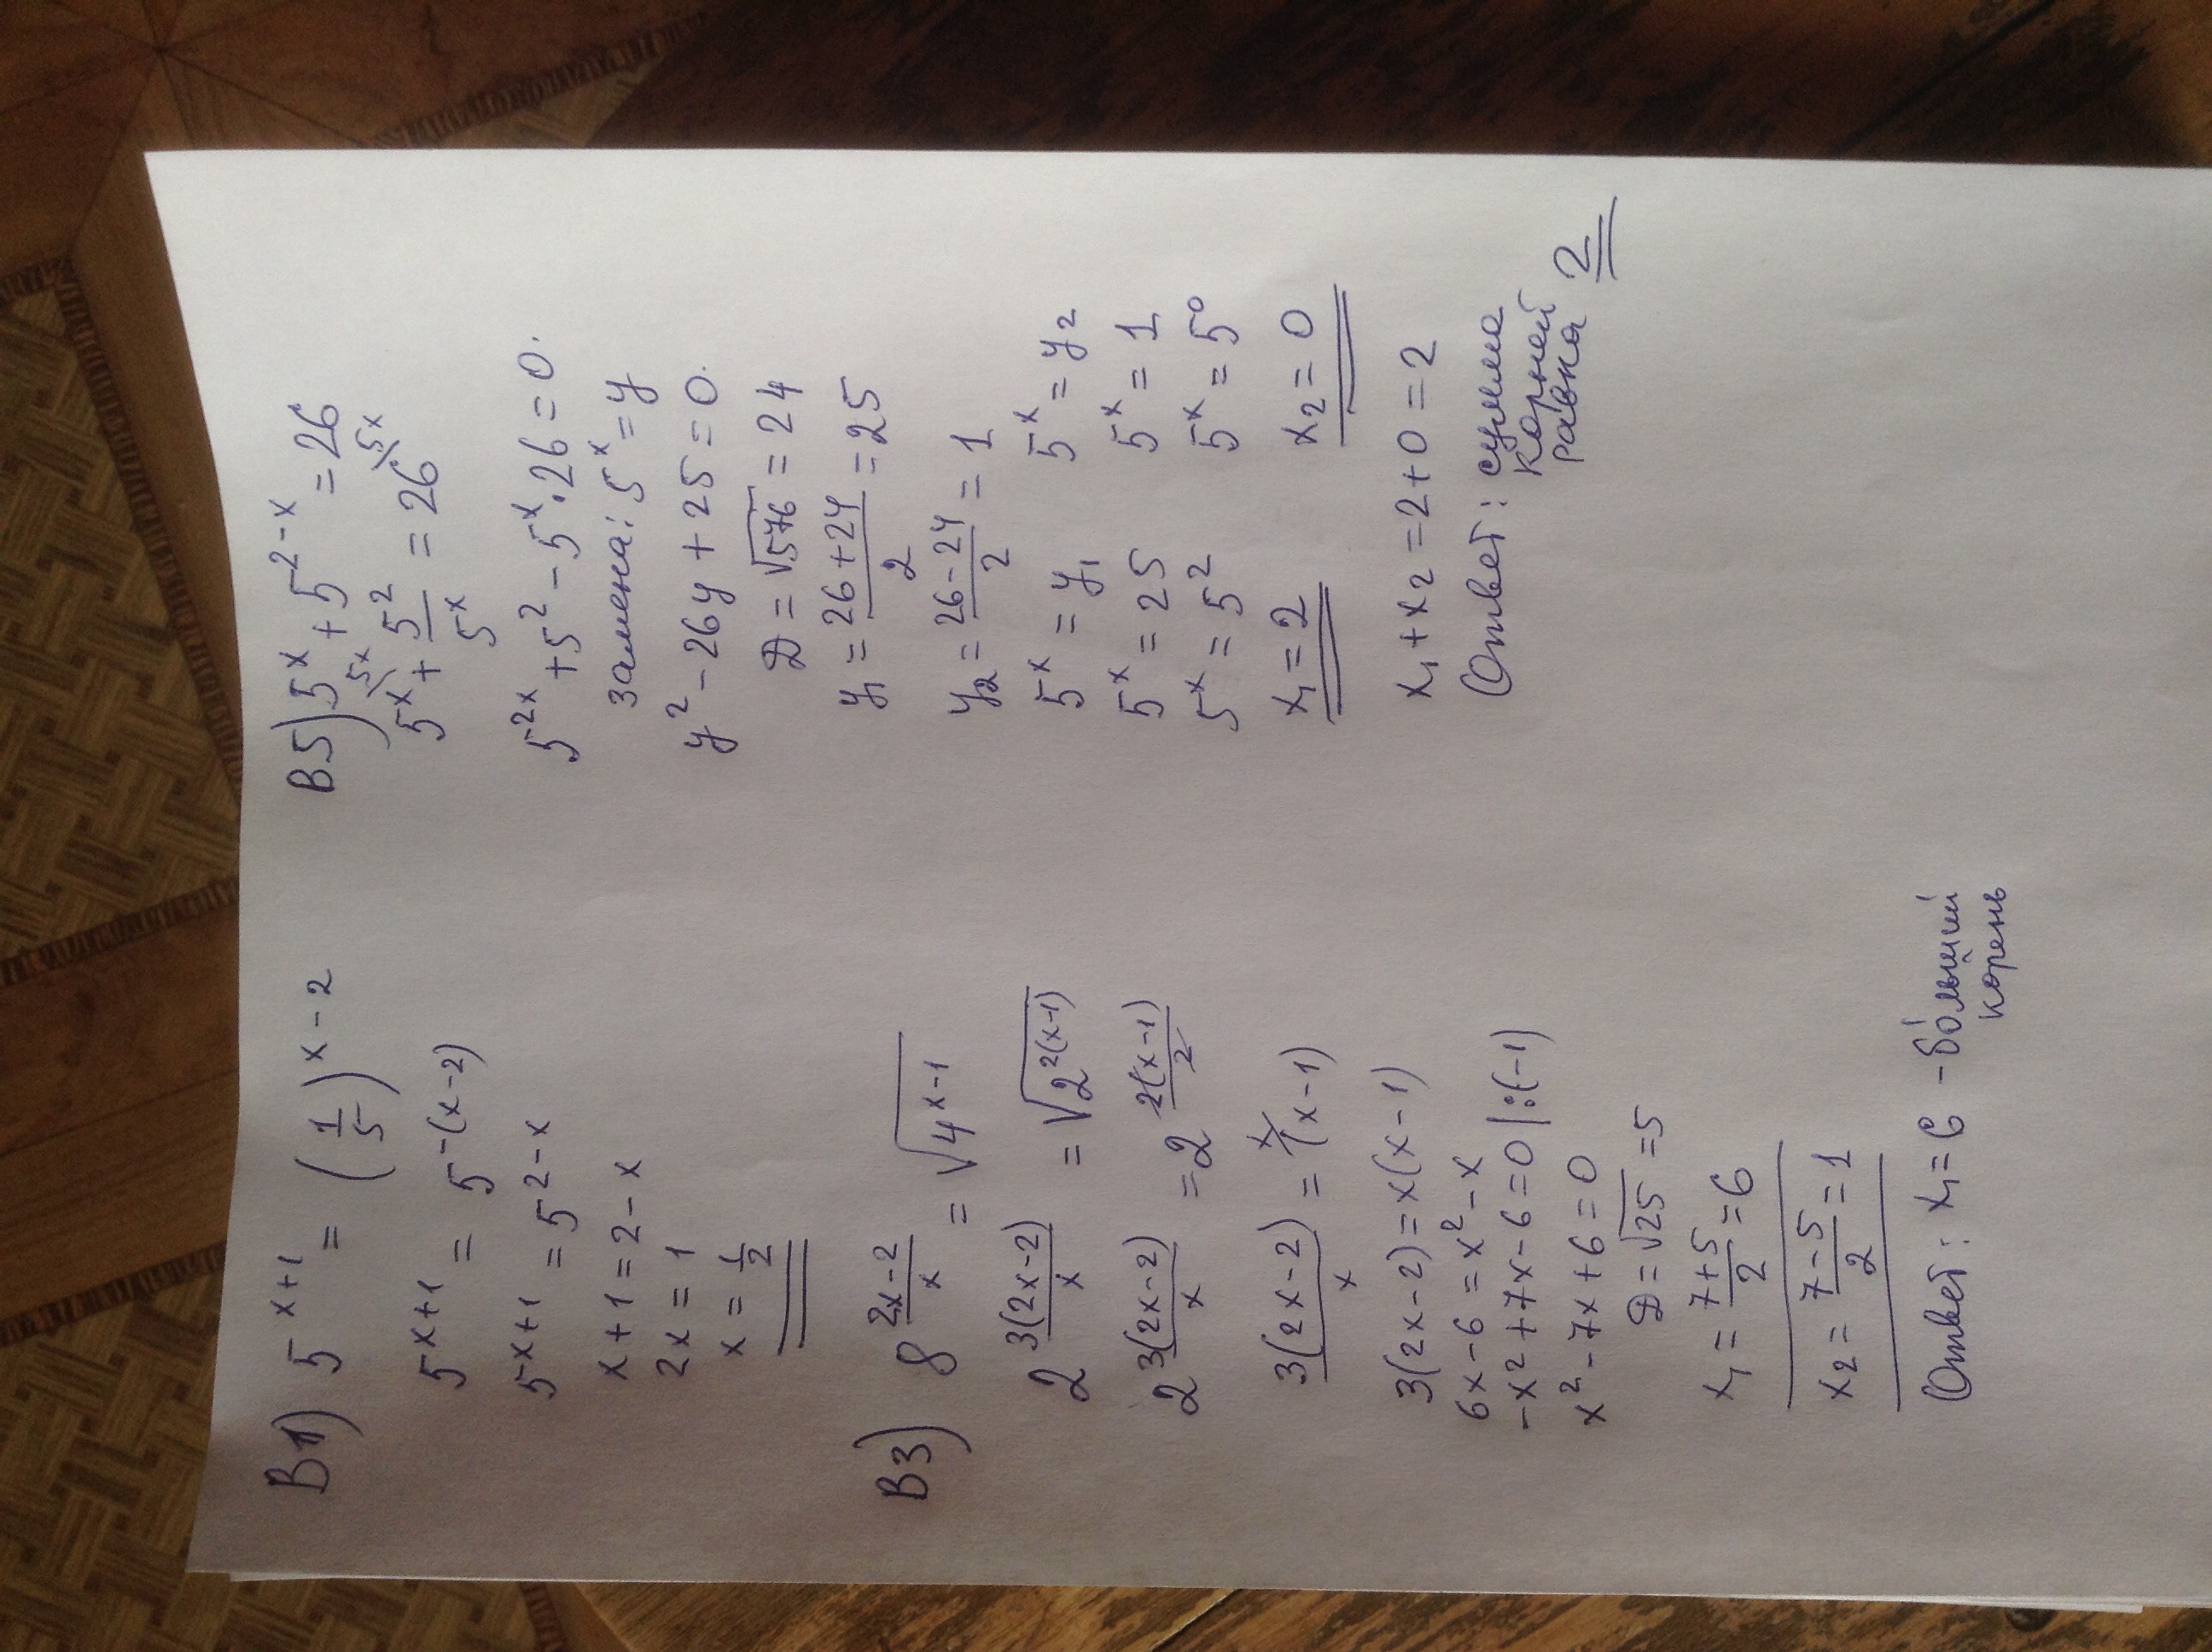 B1) 5^(x+1) = (1/5)^(x-2)
5^(x+1) = 5^(-(x-2))
5^(x+1) = 5^(2-x)
x+1=2-x
2x=1
x=1/2
B3) 8^((2x-2)/x) = √(4^(x-1))
2^(3(2x-2)/x) = √(2^(2(x-1)))
2^(3(2x-2)/x) = 2^(2(x-1)/2)
3(2x-2)/x = (x-1) \x
3(2x-2)=x(x-1)
6x-6=x²-x
-x²+7x-6=0 |:(-1)
x²-7x+6=0
D=√25=5
x₁=(7+5)/2=6
x₂=(7-5)/2=1
Ответ: x₁=6 - больший
корень
B5) 5^x+5^(2-x)=26
5^x \5^x + 5²/5^x = 26 \5^x
5^(2x)+5²-5^x·26=0.
замена: 5^x=y
y²-26y+25=0.
D=√576=24
y₁=(26+24)/2=25
y₂=(26-24)/2=1
5^x=y₁ 5^x=y₂
5^x=25 5^x=1
5^x=5² 5^x=5⁰
x₁=2 x₂=0
x₁+x₂=2+0=2
Ответ: сумма
корней
равна 2